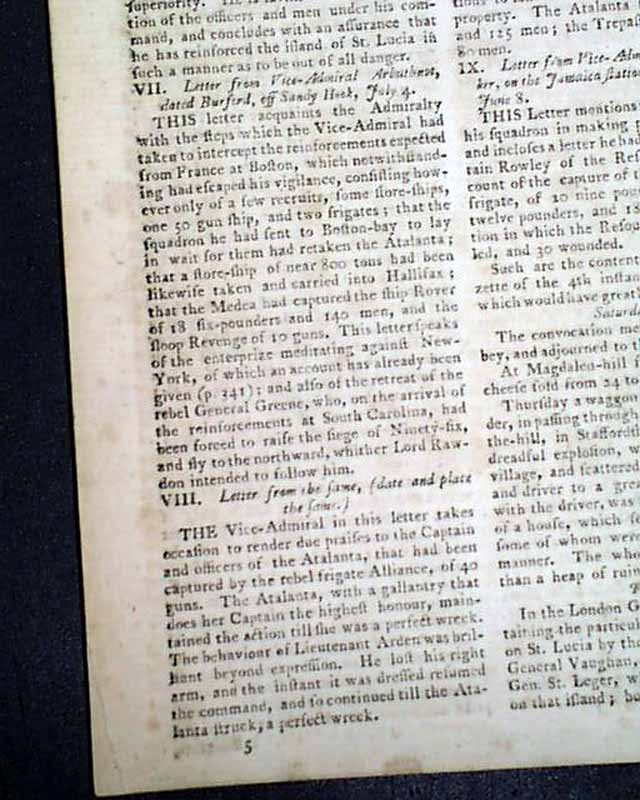 superiority. He is
tion of the officers and men under his com-
mand, and concludes with an assurance that
he has reinforced the iſland of St. Lucia in
ſuch a manner as to be out of all danger.
VII. Letter from Vice-Admiral Arbuthnot,
dated Burford, off Sandy Hook, July 4.
THIS letter acquaints the Admiralty
with the ſteps which the Vice-Admiral had
taken to intercept the reinforcements expected
from France at Boſton, which notwithſtand-
ing had eſcaped his vigilance, conſiſting how-
ever only of a few recruits, ſome ſtore-ſhips,
one 50 gun ſhip, and two frigates; that the
ſquadron he had ſent to Boſton-bay to lay
in wait for them had retaken the Atalanta;
that a ſtore-ſhip of near 800 tons had been
likewiſe taken and carried into Hallifax;
that the Medea had captured the ſhip Rover
of 18 ſix-pounders and 140 men, and the
ſloop Revenge of 10 guns. This letter ſpeaks
of the enterprize meditating againſt New-
York, of which an account has already been
given (p. 341); and alſo of the retreat of the
rebel General Greene, who, on the arrival of
the reinforcements at South Carolina, had
been forced to raiſe the ſiege of Ninety-ſix,
and fly to the northward, whither Lord Raw-
don intended to follow him.
VIII. Letter from the ſame, (date and place
the ſame.)
THE Vice-Admiral in this letter takes
occaſion to render due praiſes to the Captain
and officers of the Atalanta, that had been
captured by the rebel frigate Alliance, of 40
guns. The Atalanta, with a gallantry that
does her Captain the higheſt honour, main-
tained the action till ſhe was a perfect wreck.
The behaviour of Lieutenant Arden was bril-
liant beyond expreſſion. He loſt his right
arm, and the inſtant it was dreſſed reſumed
the command, and ſo continued till the Ata-
lanta ſtruck, a perfect wreck.
5
property. The Atalanta
and 125 men; the Trepa
80 men.
IX. Letter from Vice-Adm
ker, on the Jamaica ſtatio
June 8.
THIS Letter mentions
his ſquadron in making p
and incloſes a letter he had
tain Rowley of the Reſ
count of the capture of t
frigate, of 20 nine pou
twelve pounders, and 1
tion in which the Reſou
led, and 30 wounded.
Such are the content
zette of the 4th inſta
which would have great
Saturda
The convocation me
bey, and adjourned to th
At Magdalen-hill f
cheeſe ſold from 24 to
Thurſday a waggon
der, in paſſing through
the-hill, in Staffordſh
dreadful exploſion, w
village, and ſcattered
and driver to a grea
with the driver, was
of a houſe, which ſ
ſome of whom were
manner. The who
than a heap of ruin
In the London G
taining the particul
on St. Lucia by the
General Vaughan,
Gen. St. Leger, w
on that iſland; b